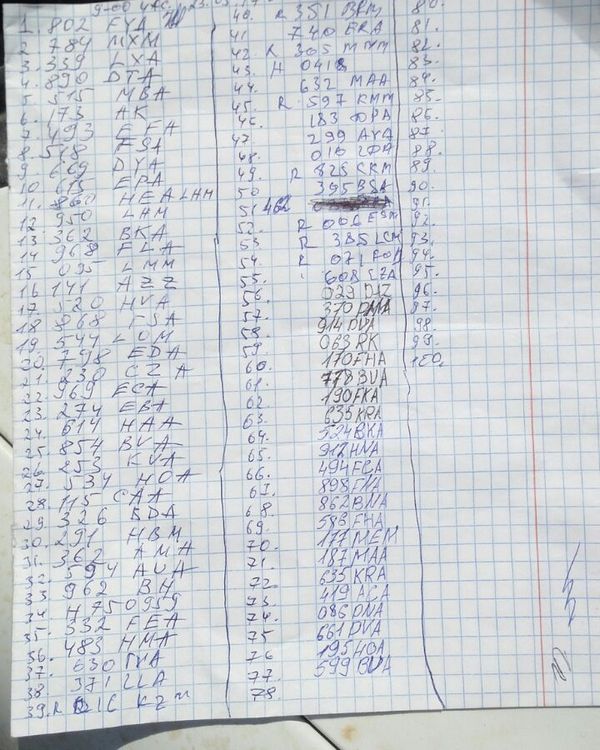 9-00
1. 802 FYA
2. 784 MXM
3. 339 LXA
4. 890 DTA
5. 515 MBA
6. 173 AK
7. 493 EFA
8. 548 FSA
9. 669 DYA
10. 615 EPA
11. 860 HEA LHM
12 950 LHM
13. 362 BKA
14 968 FLA
15 095 LMM
16 141 AZZ
17 520 HVA
18 868 FSA
19 544 LOM
20. 798 EDA
21. 330 CZA
22. 969 ECA
23. 274 EBA
24 614 HAA
25. 854 BVA
26. 253 KVA
27. 534 HOA
28. 115 CAA
29 326 BDA
30. 291 HBM
31. 362 AMA
32. 594 AUA
33 962 BH
34 H 750959
35. 332 FEA
36. 483 HMA
37. 630
38 371 LLA
39. R 016 KZM
40. R 351
41 740 ERA
42 R 305
43. H 0418
44. 632 MAA
45. R 597 KMM
46. 183
47 299 AYA
48. 016
49. R 825 CKM
50 395 BSA
51 462
52. R 006 ESM
53 R 385 LCM
54. R 071
55. 608 CZA
56 029
57. 370
58. 914 DVA
59. 063 RK
60. 110 FHA
61. 778 BVA
62. 190 FKA
63. 635 KRA
64. 524 BKA
65. 912 HNA
66. 494 FCA
67. 898 FNA
68 862 BNA
69. 586 FHA
70. 177 MEM
71. 187 MAA
72 635 KRA
73. 419 ACA
74. 086 DNA
75 661 DVA
76 195 HOA
77. 599 BUA
78
80.
81.
82.
83.
84.
85.
86.
87
88.
89
90.
91.
92.
93.
94.
95.
96.
97.
98.
99.
100.